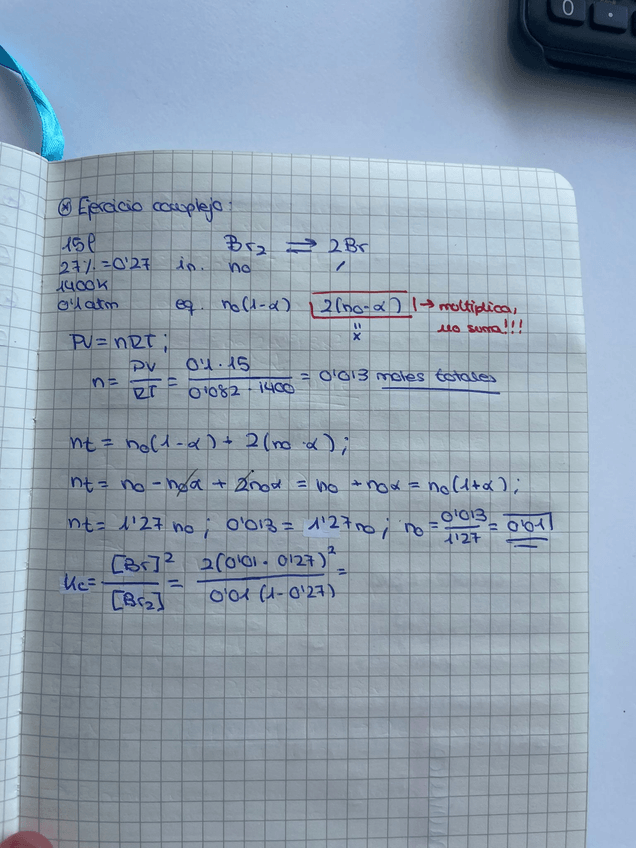 0 .
* Ejercicio complejo:
15l Br₂ ⇌ 2Br
27% = 0'27 in. n₀ /
1400K
0'1 atm eq. n₀(1-α) 2(n₀·α) → multiplica,
no suma!!!
= x
PV = nRT;
n = PV/RT = 0'1 · 15 / 0'082 · 1400 = 0'013 moles totales
nt = n₀(1-α) + 2(n₀·α);
nt = n₀ - n₀α + 2n₀α = n₀ + n₀α = n₀(1+α);
nt = 1'27 n₀; 0'013 = 1'27n₀; n₀ = 0'013/1'27 = 0'01
Kc = [Br]²/[Br₂] = 2(0'01 · 0'27)²/0'01 (1-0'27) =